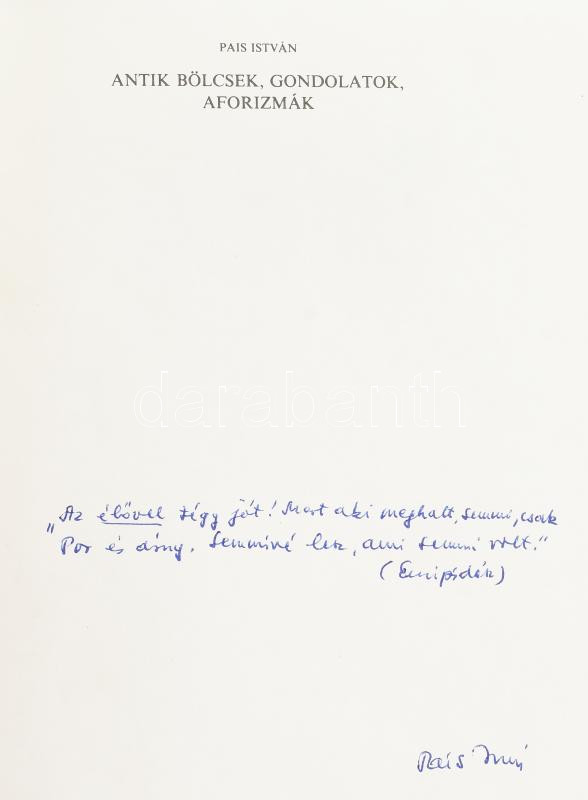 PAIS ISTVÁN
ANTIK BÖLCSEK, GONDOLATOK,
AFORIZMÁK
darabanth
„Az élővel tégy jót! Mert aki meghalt, semmi, csak
Por és árny. Semmivé lesz, ami semmi volt."
(Euripidész)
Pais István